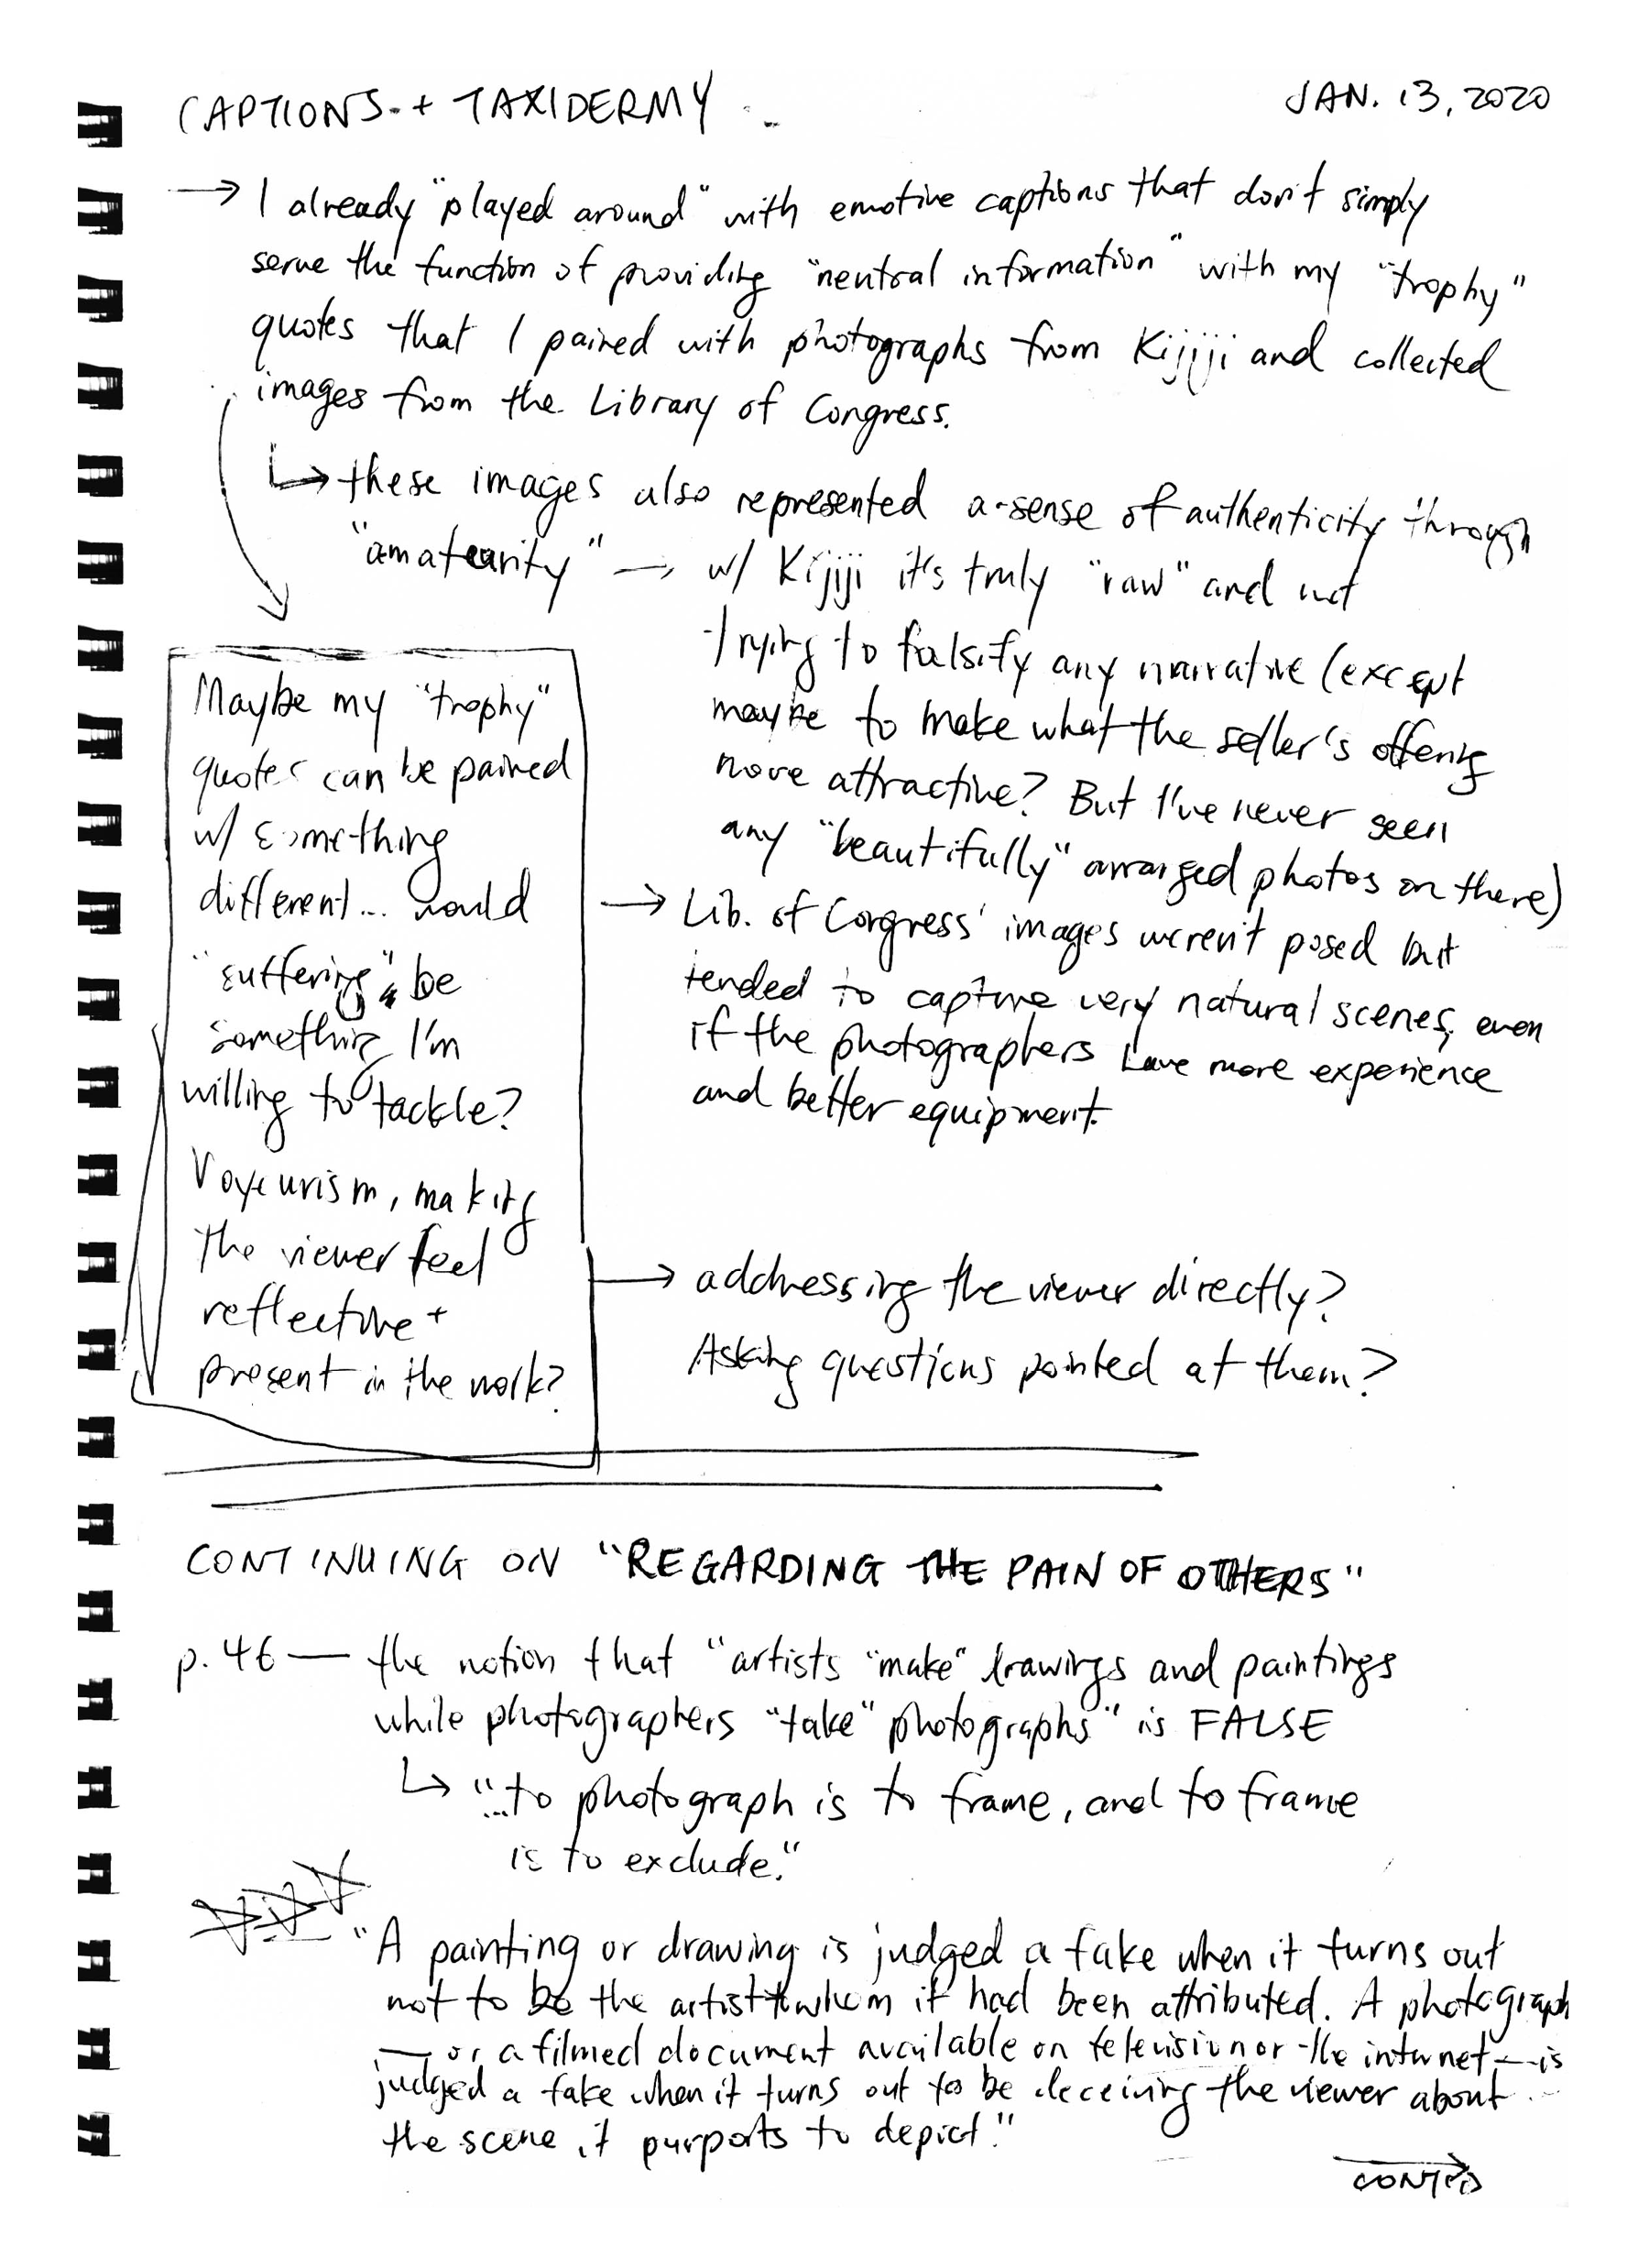 CAPTIONS + TAXIDERMY
JAN. 13, 2020
→ I already "played around" with emotive captions that don't simply
serve the function of providing "neutral information" with my "trophy"
quotes that I paired with photographs from Kijiji and collected
images from the Library of Congress.
↳ these images also represented a sense of authenticity through
"amateurity" → w/ Kijiji it's truly "raw" and not
trying to falsify any narrative (except
maybe to make what the seller's offering
more attractive? But I've never seen
any "beautifully" arranged photos on there)
→ Lib. of Congress' images weren't posed but
tended to capture very natural scenes, even
if the photographers have more experience
and better equipment.
Maybe my "trophy"
quotes can be paired
w/ something
different... would
"suffering" be
something I'm
willing to tackle?
Voyeurism, making
the viewer feel
reflective +
present in the work?
→ addressing the viewer directly?
Asking questions pointed at them?
CONTINUING ON "REGARDING THE PAIN OF OTHERS"
p. 46 — the notion that "artists "make" drawings and paintings
while photographers "take" photographs" is FALSE
↳ "...to photograph is to frame, and to frame
is to exclude."
"A painting or drawing is judged a fake when it turns out
not to be the artist to whom it had been attributed. A photograph
— or a filmed document available on television or the internet — is
judged a fake when it turns out to be deceiving the viewer about
the scene it purports to depict."
CONT'D